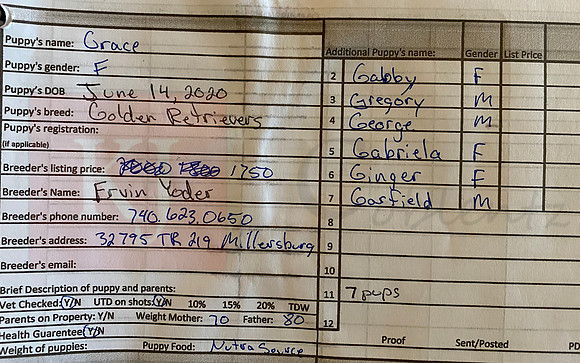 Puppy's name: Grace
Puppy's gender: F
Puppy's DOB June 14, 2020
Puppy's breed: Golden Retrievers
Puppy's registration:
(if applicable)
Breeder's listing price: 1750
Breeder's Name: Ervin Yoder
Breeder's phone number: 740.623.0650
Breeder's address: 32795 TR 219 Millersburg
Breeder's email:
Brief Description of puppy and parents:
Vet Checked: Y/N UTD on shots: Y/N 10% 15% 20% TDW
Parents on Property: Y/N Weight Mother: 70 Father: 80
Health Guarentee Y/N
Weight of puppies: Puppy Food: Nutra Source
Additional Puppy's name: Gender List Price
2 Gabby F
3 Gregory M
4 George M
5 Gabriela F
6 Ginger F
7 Garfield M
8
9
10
11 7 pups
12
Proof Sent/Posted PD